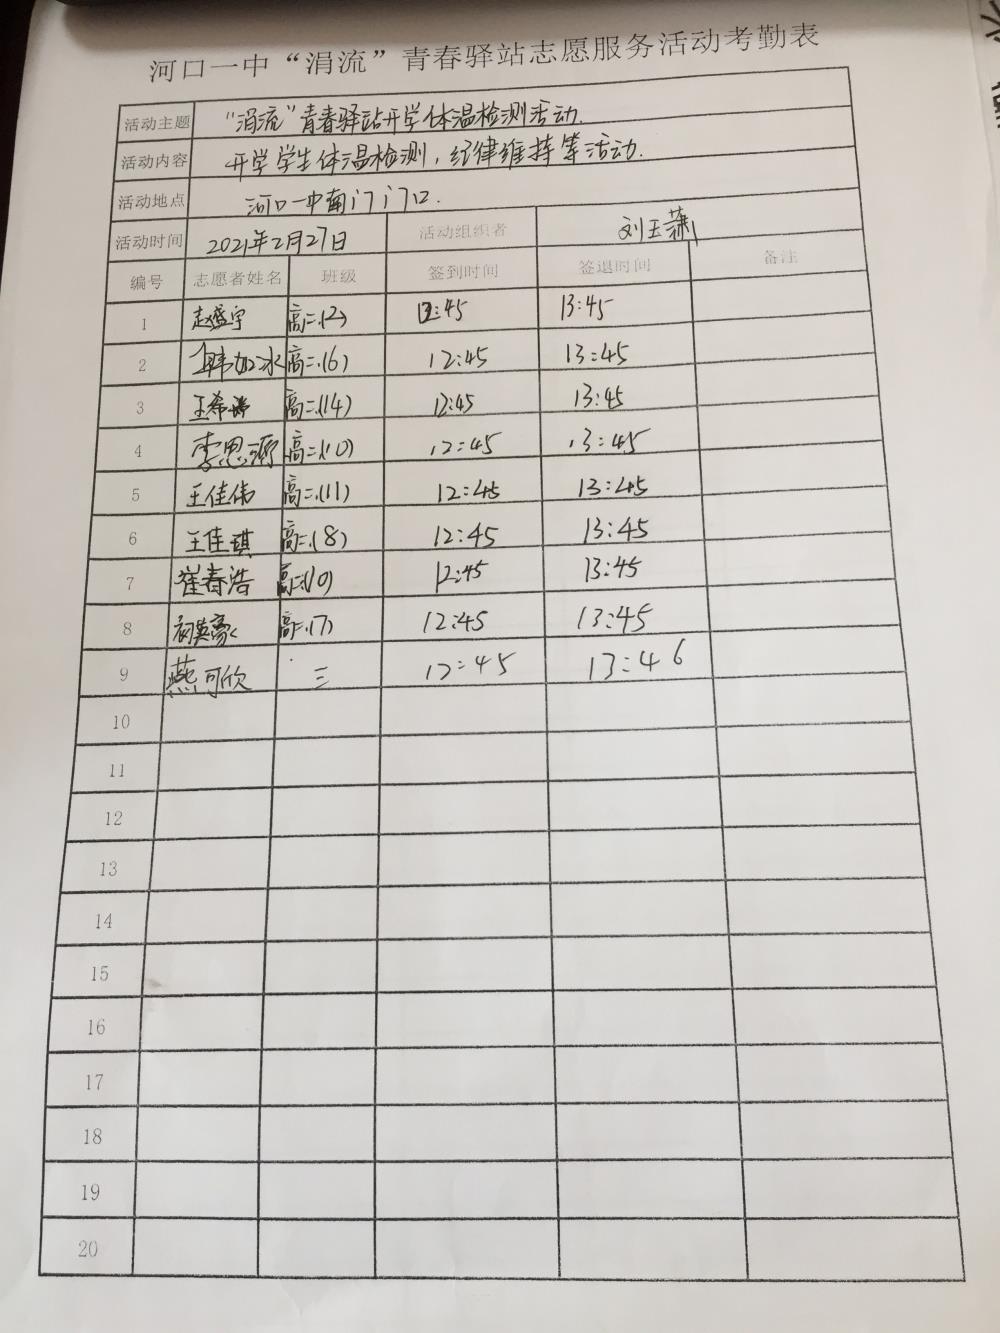 河口一中“涓流”青春驿站志愿服务活动考勤表
活动主题 “涓流”青春驿站开学体温检测活动.
活动内容 开学学生体温检测，纪律维持等活动.
活动地点 河口一中南门门口.
活动时间 2021年2月27日 活动组织者 刘玉萧
编号 志愿者姓名 班级 签到时间 签退时间 备注
1 赵盛宇 高二.(2) 12:45 13:45
2 韩如冰 高二.(6) 12:45 13:45
3 王希 高二.(14) 12:45 13:45
4 李思源 高二.(10) 12:45 13:45
5 王佳伟 高二.(11) 12:45 13:45
6 王佳琪 高二.(8) 12:45 13:45
7 崔春浩 高二.(10) 12:45 13:45
8 英豪 高二.(7) 12:45 13:45
9 燕可欣 三 12:45 13:46
10
11
12
13
14
15
16
17
18
19
20